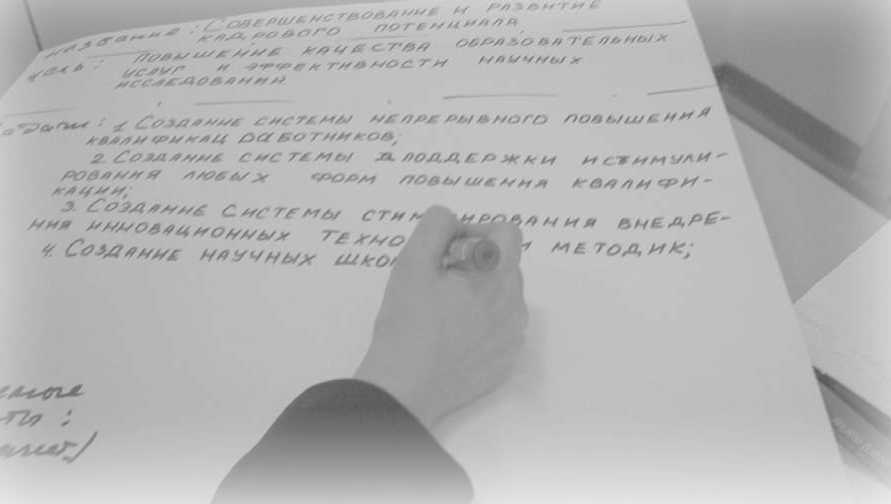 Название: Совершенствование и развитие
кадрового потенциала
Цель: повышение качества образовательных
услуг и эффективности научных
исследований
Задачи: 1. Создание системы непрерывного повышения
квалификац работников;
2. Создание системы поддержки и стимули-
рования любых форм повышения квалифи-
кации;
3. Создание системы стим ирования внедре-
ния инновационных техно и методик;
4. Создание научных шко